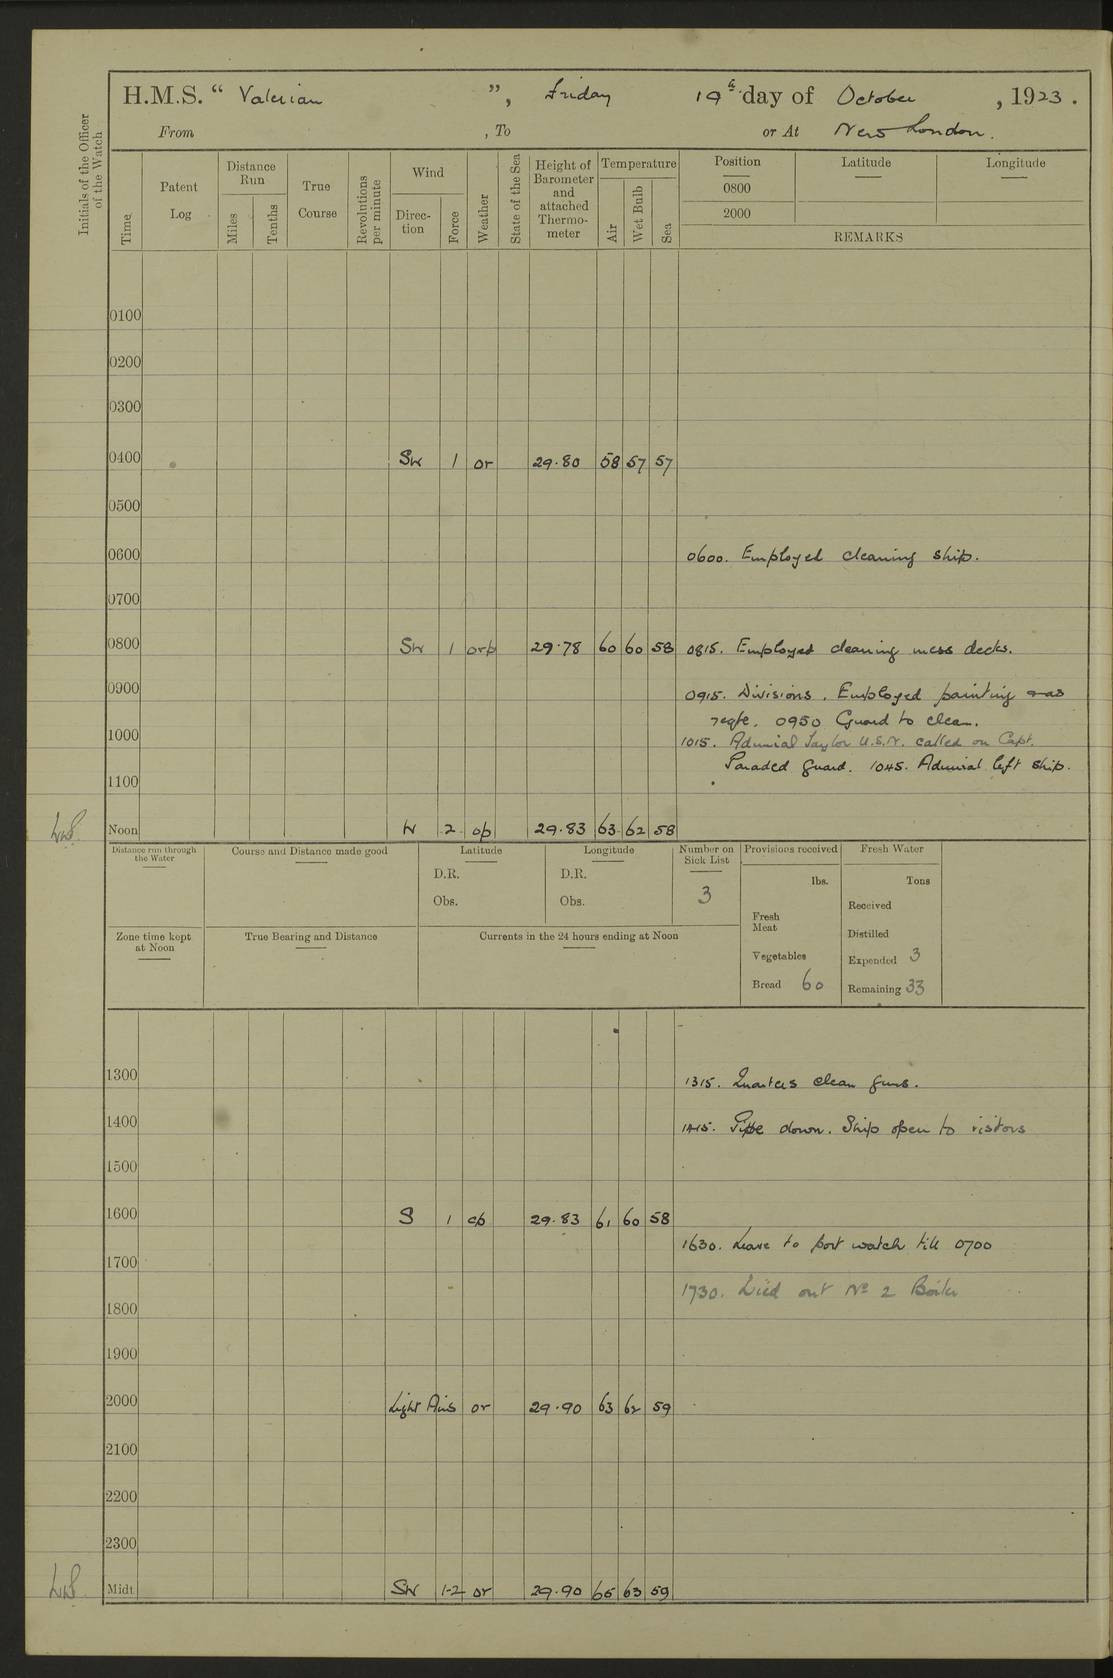 H.M.S. “ Valerian ”, Friday 19th day of October, 1923.
From , To or At New London.
Initials of the Officer of the Watch
Time
Patent Log
Distance Run
Miles
Tenths
True Course
Revolutions per minute
Wind
Direc-tion
Force
Weather
State of the Sea
Height of Barometer and attached Thermo-meter
Temperature
Air
Wet Bulb
Sea
Position
Latitude
Longitude
0800
2000
REMARKS
0100
0200
0300
0400 SW 1 or 29.80 58 57 57
0500
0600 0600. Employed cleaning ship.
0700
0800 SW 1 orp 29.78 60 60 58 0815. Employed cleaning mess decks.
0900 0915. Divisions. Employed painting
reqte. 0950 Guard to clean.
1000 1015. Admiral Taylor U.S.N. called on Capt.
Paraded guard. 1045. Admiral left ship.
1100
Noon W 2 op 29.83 63 62 58
Distance run through the Water
Course and Distance made good
Latitude
D.R.
Obs.
Longitude
D.R.
Obs.
Number on Sick List
3
Provisions received
lbs.
Fresh Meat
Vegetables
Bread 60
Fresh Water
Tons
Received
Distilled
Expended 3
Remaining 33
Zone time kept at Noon
True Bearing and Distance
Currents in the 24 hours ending at Noon
1300 1315. Quarters clean guns.
1400 1415. Pipe down. Ship open to visitors
1500
1600 S 1 cp 29.83 61 60 58
1630. Leave to port watch till 0700
1700
1730. Died out No 2 Boiler
1800
1900
2000 Light Airs or 29.90 63 62 59
2100
2200
2300
Midt. SW 1-2 or 29.90 65 63 59